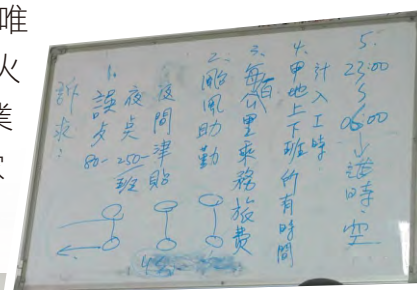 唯
火
業
訴求:
1. 夜間津貼
誤夕 夜点
80- 250-班
2. 颱風助勤
3. 每百公里乘務旅費
4. 甲地上下班所有時間
計入工時
5. 23:00
06:00
時空